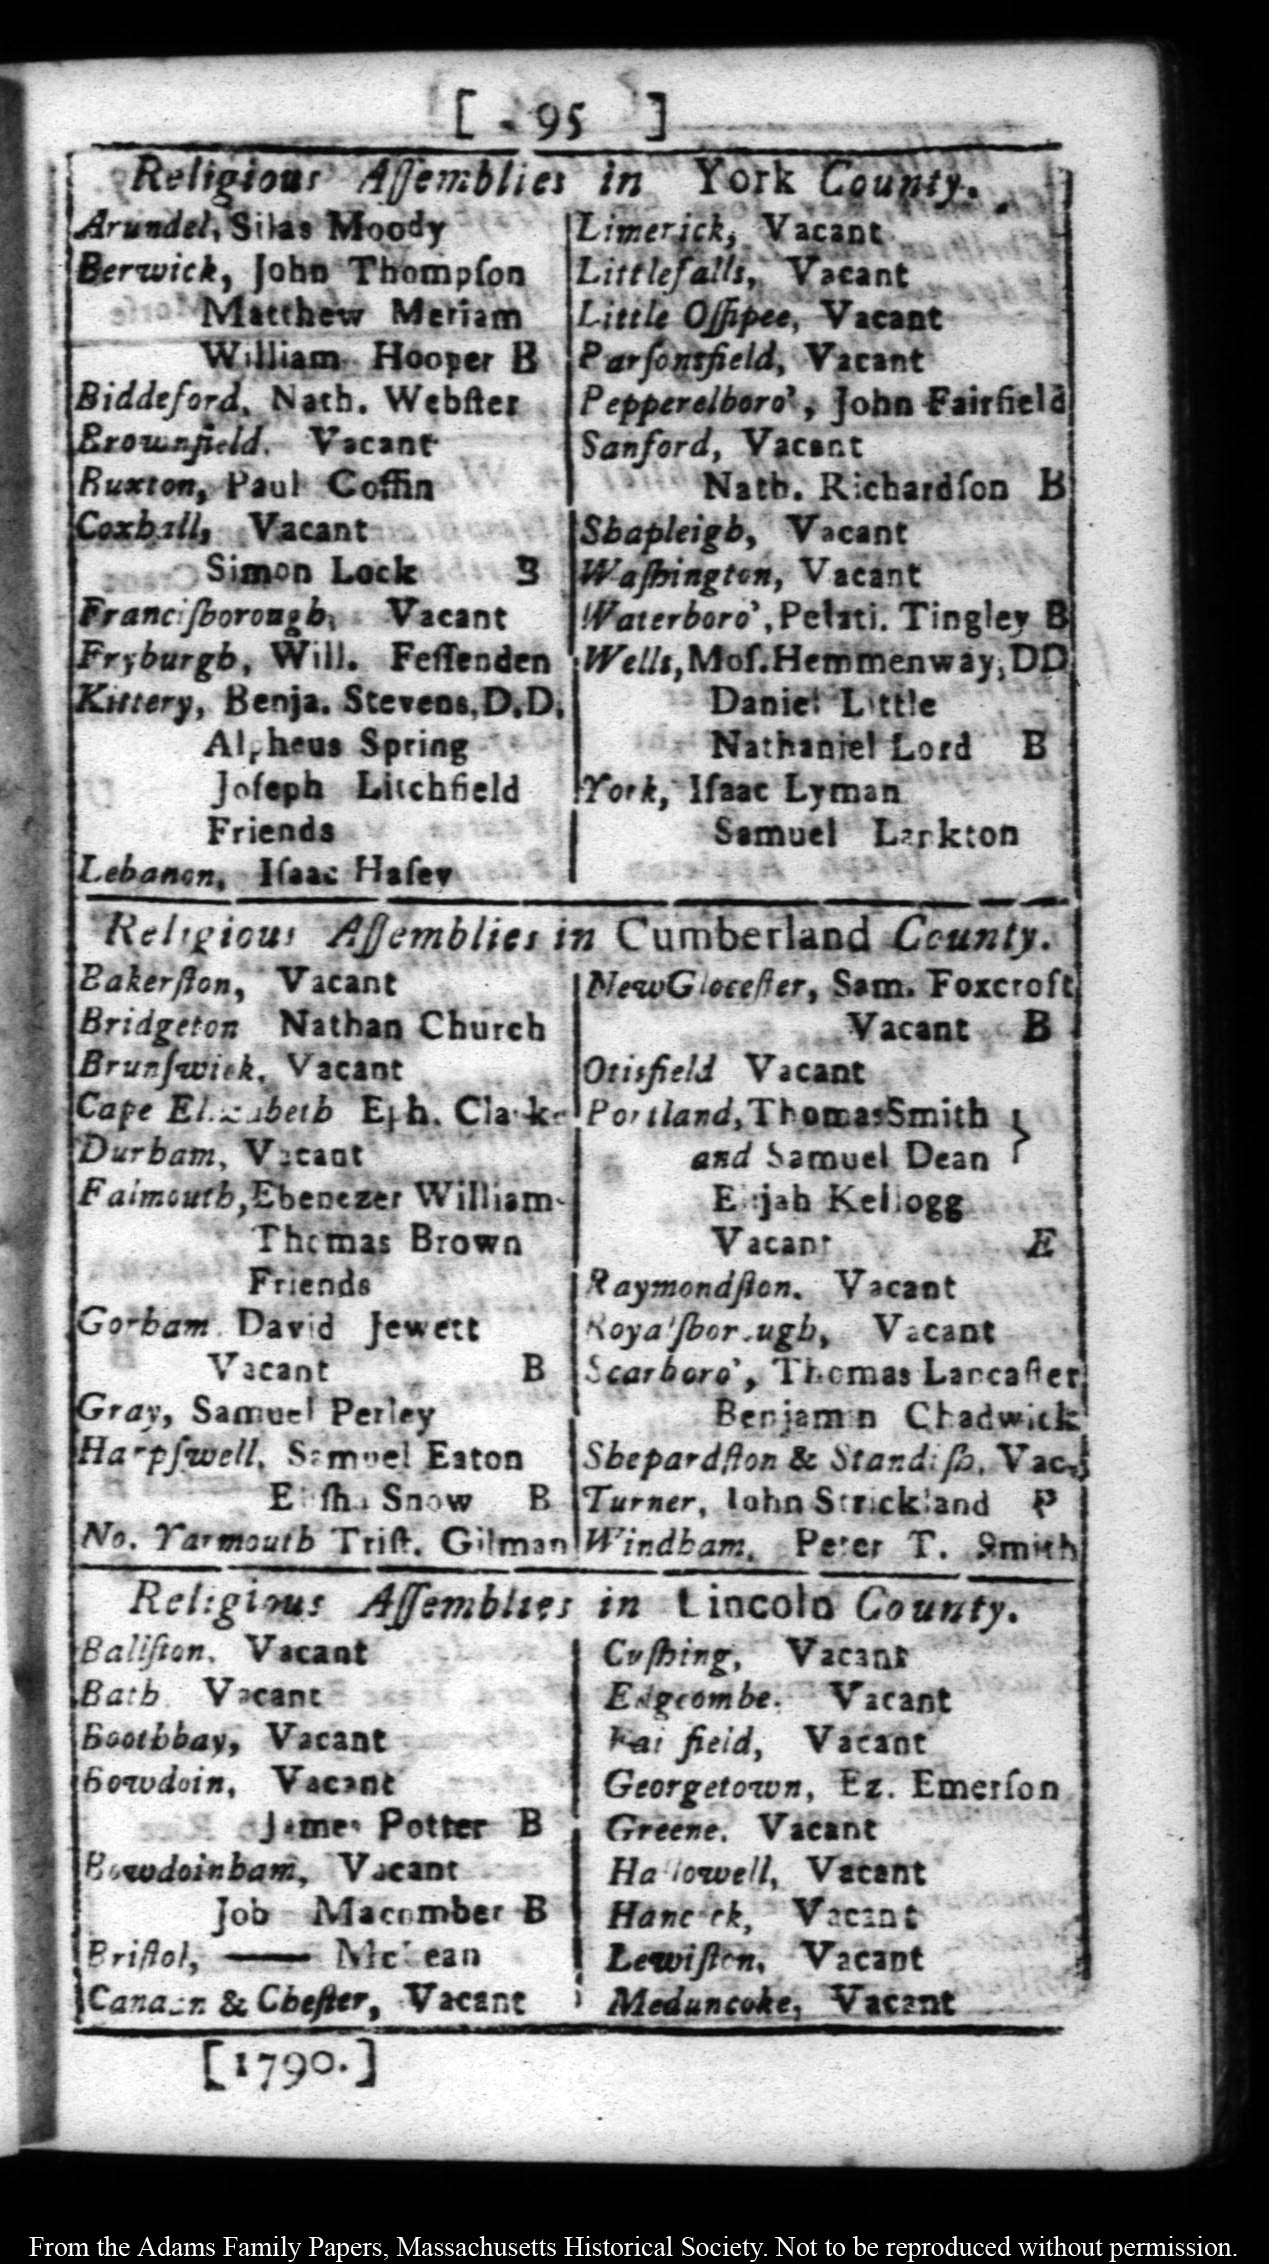 [ 95 ]
Religious Aſſemblies in York County.
Arundel, Silas Moody
Berwick, John Thompſon
Matthew Meriam
William Hooper B
Biddeford, Nath. Webſter
Brownfield. Vacant
Buxton, Paul Coffin
Coxhall, Vacant
Simon Lock B
Franciſborough, Vacant
Fryburgh, Will. Feſſenden
Kittery, Benja. Stevens, D.D.
Alpheus Spring
Joſeph Litchfield
Friends
Lebanon, Iſaac Haſey
Limerick, Vacant
Littlefalls, Vacant
Little Oſſipee, Vacant
Parſonsfield, Vacant
Pepperelboro', John Fairfield
Sanford, Vacant
Nath. Richardſon B
Shapleigh, Vacant
Waſhington, Vacant
Waterboro', Pelati. Tingley B
Wells, Moſ. Hemmenway, DD
Daniel Little
Nathaniel Lord B
York, Iſaac Lyman
Samuel Lankton
Religious Aſſemblies in Cumberland County.
Bakerſton, Vacant
Bridgeton Nathan Church
Brunſwick, Vacant
Cape Elizabeth Eph. Clarke
Durham, Vacant
Falmouth, Ebenezer William
Thomas Brown
Friends
Gorham David Jewett
Vacant B
Gray, Samuel Perley
Harpſwell, Samuel Eaton
Eliſha Snow B
No. Yarmouth Triſt. Gilman
New Gloceſter, Sam. Foxcroft
Vacant B
Otisfield Vacant
Portland, Thomas Smith }
and Samuel Dean
Elijah Kellogg
Vacant E
Raymondſton. Vacant
Royalſborough, Vacant
Scarboro', Thomas Lancaſter
Benjamin Chadwick
Shepardſton & Standiſh, Vac.
Turner, John Strickland P
Windham, Peter T. Smith
Religious Aſſemblies in Lincoln County.
Ballſton, Vacant
Bath Vacant
Boothbay, Vacant
Bowdoin, Vacant
James Potter B
Bowdoinham, Vacant
Job Macomber B
Briſtol, —— McLean
Canaan & Cheſter, Vacant
Cuſhing, Vacant
Edgcombe. Vacant
Fairfield, Vacant
Georgetown, Ez. Emerſon
Greene. Vacant
Hallowell, Vacant
Hancock, Vacant
Lewiſton, Vacant
Meduncoke, Vacant
[1790.]
From the Adams Family Papers, Massachusetts Historical Society. Not to be reproduced without permission.